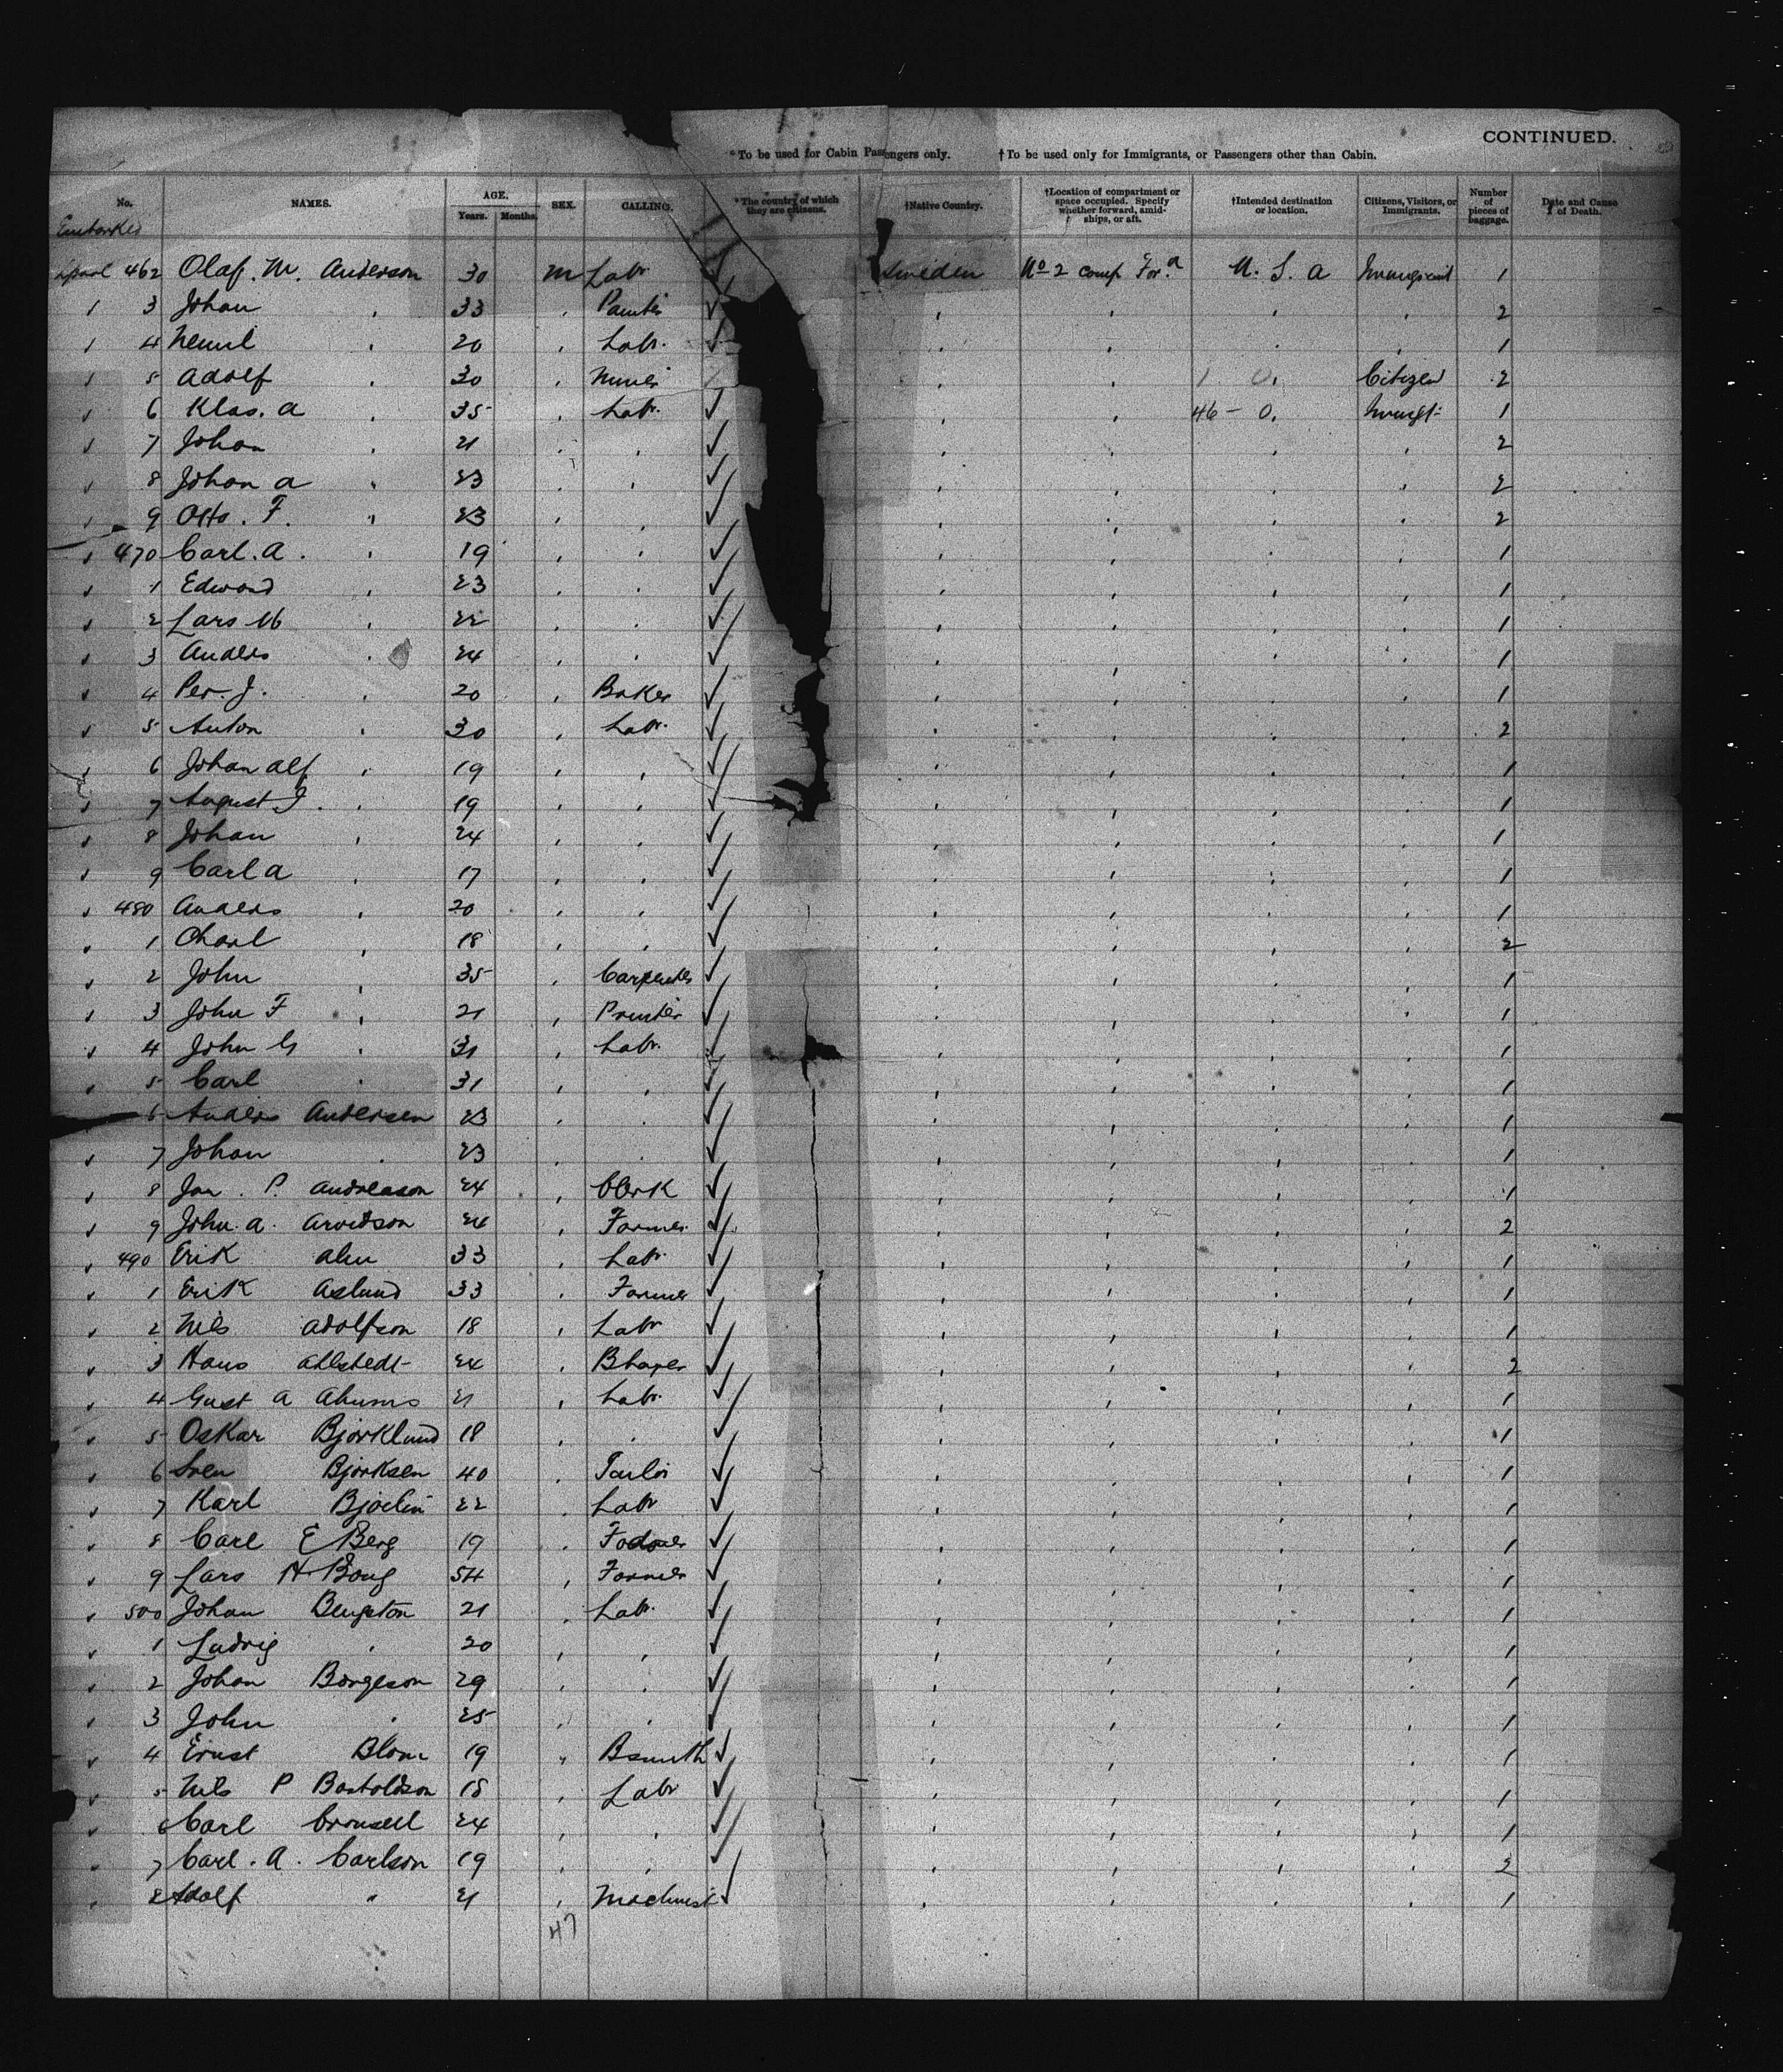 CONTINUED.
*To be used for Cabin Passengers only. †To be used only for Immigrants, or Passengers other than Cabin.
No. NAMES. AGE. Years. Months. SEX. CALLING. *The country of which they are citizens. †Native Country. †Location of compartment or space occupied. Specify whether forward, amidships, or aft. †Intended destination or location. Citizens, Visitors, or Immigrants. Number of pieces of baggage. Date and Cause of Death.
Embarked
462 Olaf. M. Anderson 30 M Labr Sweden No 2 comp For.d U. S. A Immigrant 1
3 Johan 33 Painter 2
4 20 Labr. 1
5 Adolf 30 Miner 1 0 Citizen 2
6 Klas. A 35 Labr. 46 - 0 Immigt 1
7 Johan 21 2
8 Johan A 23 2
9 Otto. F. 23 2
470 Carl. A. 19 1
1 Edward 23 1
2 Lars M 22 1
3 Anders 24 1
4 Per. J. 20 Baker 1
5 Anton 30 Labr. 2
6 Johan Alf 19 1
7 August J. 19 1
8 Johan 24 1
9 Carl A 17 1
480 Anders 20 1
1 Charl 18 2
2 John 35 Carpenter 1
3 John F 21 Printer 1
4 John G 31 Labr. 1
5 Carl 31 1
6 Anders Andersen 23 1
7 Johan 23 1
8 Jon. P. Andreason 24 Clerk 1
9 John. A. Arvidson 24 Farmer 2
490 Erik Alm 33 Labr. 1
1 Erik Aslund 33 Farmer 1
2 Nils Adolfson 18 Labr 1
3 Hans Ahlstedt 24 2
4 Gust A 21 Labr. 1
5 Oskar Bjorklund 18 1
6 Sven Bjorksen 40 Tailor 1
7 Karl Bjoelin 22 Labr 1
8 Carl E Berg 19 1
9 Lars H Bong 54 Farmer 1
500 Johan Bengston 21 Labr. 1
1 Ludvig 20 1
2 Johan Borgeson 29 1
3 John 25 1
4 Ernst Blom 19 Bsmith 1
5 Nils P Bartoldson 18 Labr 1
6 Carl Cronsell 24 1
7 Carl. A. Carlson 19 2
8 Adolf " 21 Machinist 1
47